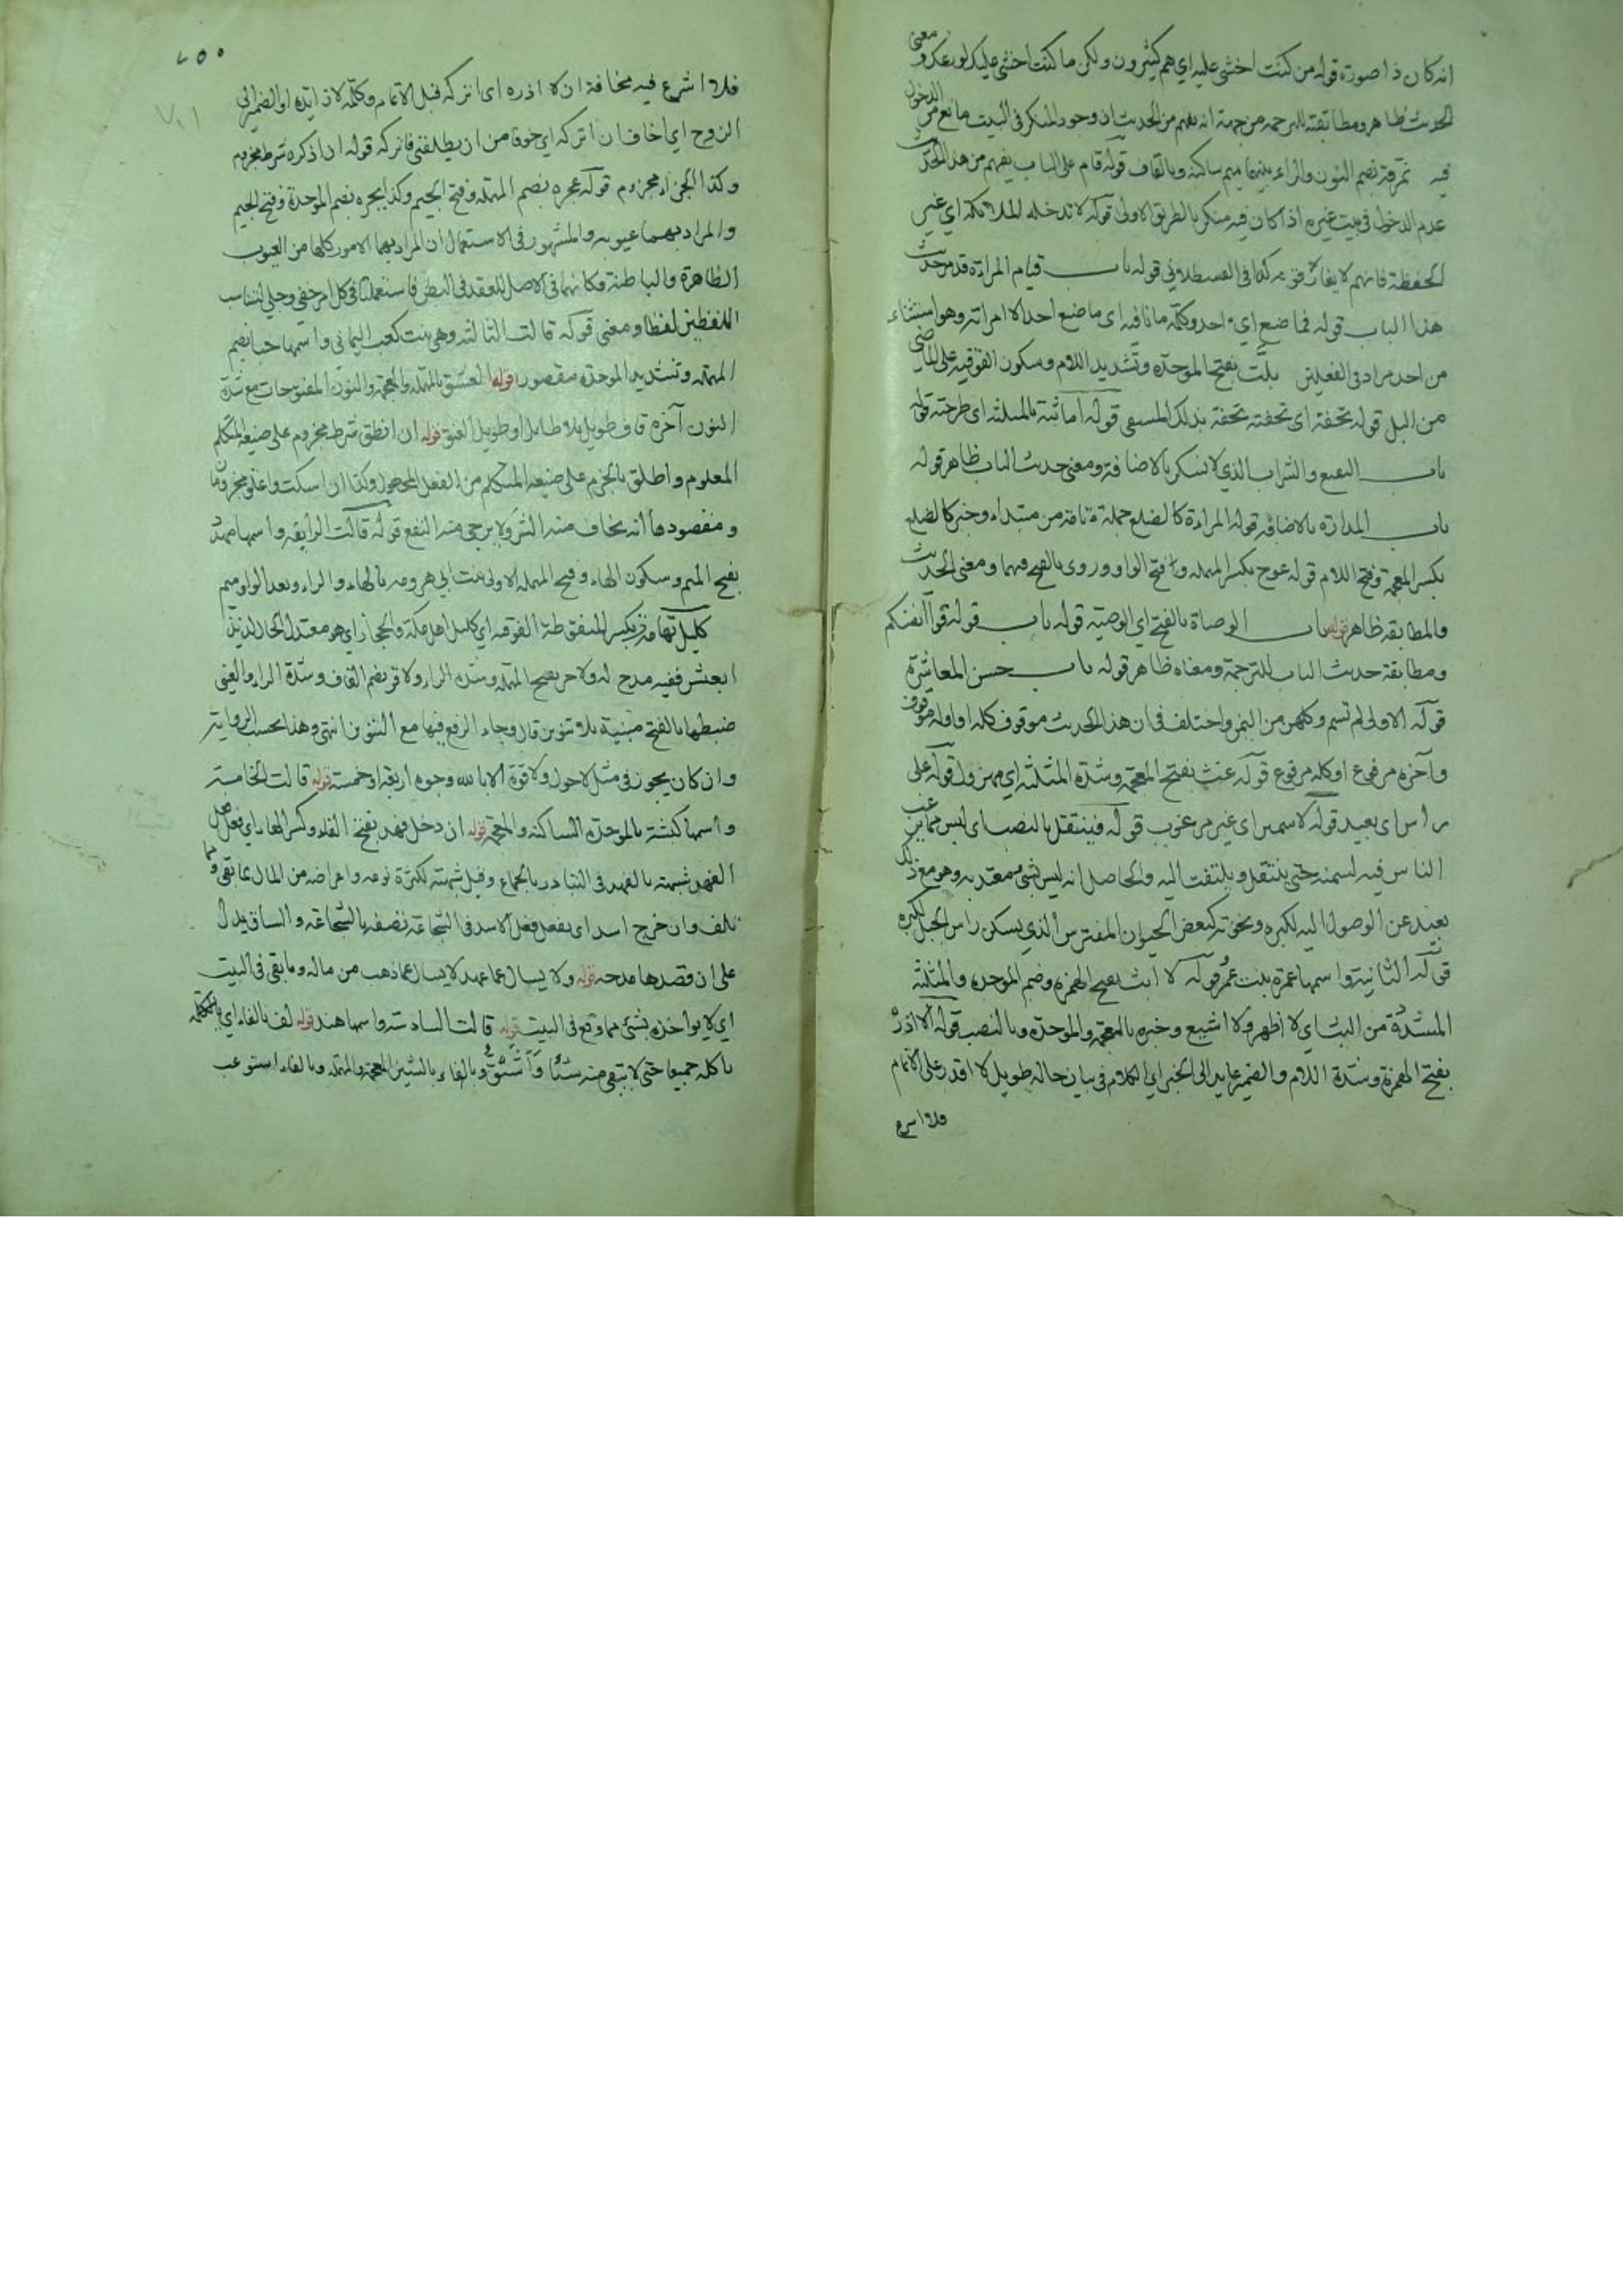 انه كان ذا صورة قوله من كنت اخشى عليه اي هم كثيرون ولكن ما كنت اخشى عليك لورعك ومعنى
الحديث ظاهر ومطابقته للترجمة من جهة انه يفهم من الحديث ان وجود المنكر في البيت مانع من الدخول
فيه نمرقة بضم النون والراء بينهما ميم ساكنة وبالقاف قوله قام على الباب يفهم من هذا الحديث
عدم الدخول في بيت غيره اذا كان فيه منكر بالطريق الاولى قوله لا تدخله الملائكة اي غير
الحفظة فانهم لا يفارقونه كذا في القسطلاني قوله باب قيام المراءة قد مر حديث
هذا الباب قوله فما صنع اي احد وكلمة ما نافية اى ما صنع احد الا امراته وهو استثناء
من احد مراد في الفعلين بلّت بفتح الموحدة وتشديد اللام وسكون الفوقية على الماضي
من البل قوله تحفة اى تحفته تحفة بذلك المسقى قوله اماثته بالمثلثة اى طرحته قوله
باب النقيع والشراب الذي لا يسكر بالاضافة ومعنى حديث الباب ظاهر قوله
باب المداراة بالاضافة قوله المراءة كالضلع جملة تامة من مبتداء وخبر كالضلع
بكسر المعجمة وفتح اللام قوله عوج بكسر المهملة وفتح الواو وروى بالفتح فيهما ومعنى الحديث
والمطابقة ظاهر قوله باب الوصاة بالفتح اي الوصية قوله باب قوله قوا انفسكم
ومطابقة حديث الباب للترجمة ومعناه ظاهر قوله باب حسن المعاشرة
قوله الاولى لم تسم وكلهن من اليمن واختلف في ان هذا الحديث موقوف كله او اوله موقوف
وآخره مرفوع او كله مرفوع قوله غث بفتح المعجمة وشدة المثلثة اي مهزول قوله على
راس اى بعيد قوله لا سمين اى غير مرغوب قوله فينتقل بالنصب اى ليس مما يرغب
الناس فيه لسمنه حتى ينتقل ويلتفت اليه والحاصل انه ليس بشئ معتد به وهو مع ذلك
بعيد عن الوصول اليه لكبره ونخوته كبعض الحيوان المفترس الذي يسكن راس الجبل لكبره
قوله الثانية واسمها عمرة بنت عمرو قوله لا ابث بفتح الهمزة وضم الموحدة والمثلثة
المشددة من البث اي لا اظهر ولا اشيع وخبره بالمعجمة والموحدة وبالنصب قوله الا اذره
بفتح الهمزة وشدة اللام والضمير عايد الى الخبر اي الكلام في بيان حاله طويل لا اقدر على الاتمام
فلا اشرع
٢٥٥
فلا اشرع فيه مخافة ان لا اذره اى اتركه قبل الاتمام وكلمة لا زايدة او الضمير الى
الزوج اي اخاف ان اتركه اي خوفا من ان يطلقني فاتركه قوله ان اذكره شرط مجزوم
وكذا الجزاء مجزوم قوله عجره بضم المهملة وفتح الجيم وكذا بجره بضم الموحدة وفتح الجيم
والمراد بهما عيوبه والمشهور في الاستعمال ان المراد بهما الامور كلها من العيوب
الظاهرة والباطنة وكانهما في الاصل للعقد في البطن فاستعملتا في كل امر خفي وجلي لتناسب
اللفظين لفظا ومعنى قوله قالت الثالثة وهي بنت كعب اليماني واسمها حبا بضم
المهملة وتشديد الموحدة مقصورا قوله العشنق بالمهملة والمعجمة والنون المفتوحات مع شدة
النون آخره قاف طويل بلا طايل او طويل العنق قوله ان انطق شرط مجزوم على صيغة المتكلم
المعلوم واطلق بالجزم على صيغة المتكلم من الفعل المجهول وكذا ان اسكت واعلق مجزوما
ومقصودها انه يخاف منه الشر ولا يرجى منه النفع قوله قالت الرابعة واسمها مهدد
بفتح الميم وسكون الهاء وفتح المهملة الاولى بنت ابي هرومه بالهاء والراء وبعد الواو ميم
كليل تهامة بكسر المنقوطة الفوقية اي كليل اهل مكة والحجاز اي هو معتدل الحال لذيذ
العيش ففيه مدح له ولا حر بفتح المهملة وشدة الراء ولا قر بضم القاف وشدة الراء والعيني
ضبطها بالفتح مبنية بلا تنوين قال وجاء الرفع فيها مع التنوين انتهى وهذا بحسب الرواية
وان كان يجوز في مثل لا حول ولا قوة الا بالله وجوه اربعة او خمسة قوله قالت الخامسة
واسمها كبشة بالموحدة الساكنة والمعجمة قوله ان دخل فهد بفتح الفاء وكسر الهاء اي فعل فعل
الفهد شبهته بالفهد في التبادر بالجماع وقيل شبهته لكثرة نومه واعراضه عن المال عما بقى وما
تلف وان خرج اسد اى يفعل فعل الاسد في الشجاعة تصفه بالشجاعة والساق يدل
على ان قصدها مدحه قوله ولا يسال عما عهد لا يسال عما ذهب من ماله وما بقى في البيت
اي لا يواخذه بشئ مما وقع في البيت قوله قالت السادسة واسمها هند قوله لف بالفاء اي
ياكله جميعا حتى لا يبقى منه شيئا واشتف وبالفاء بالشين المعجمة والمهملة وبالفاء استوعب